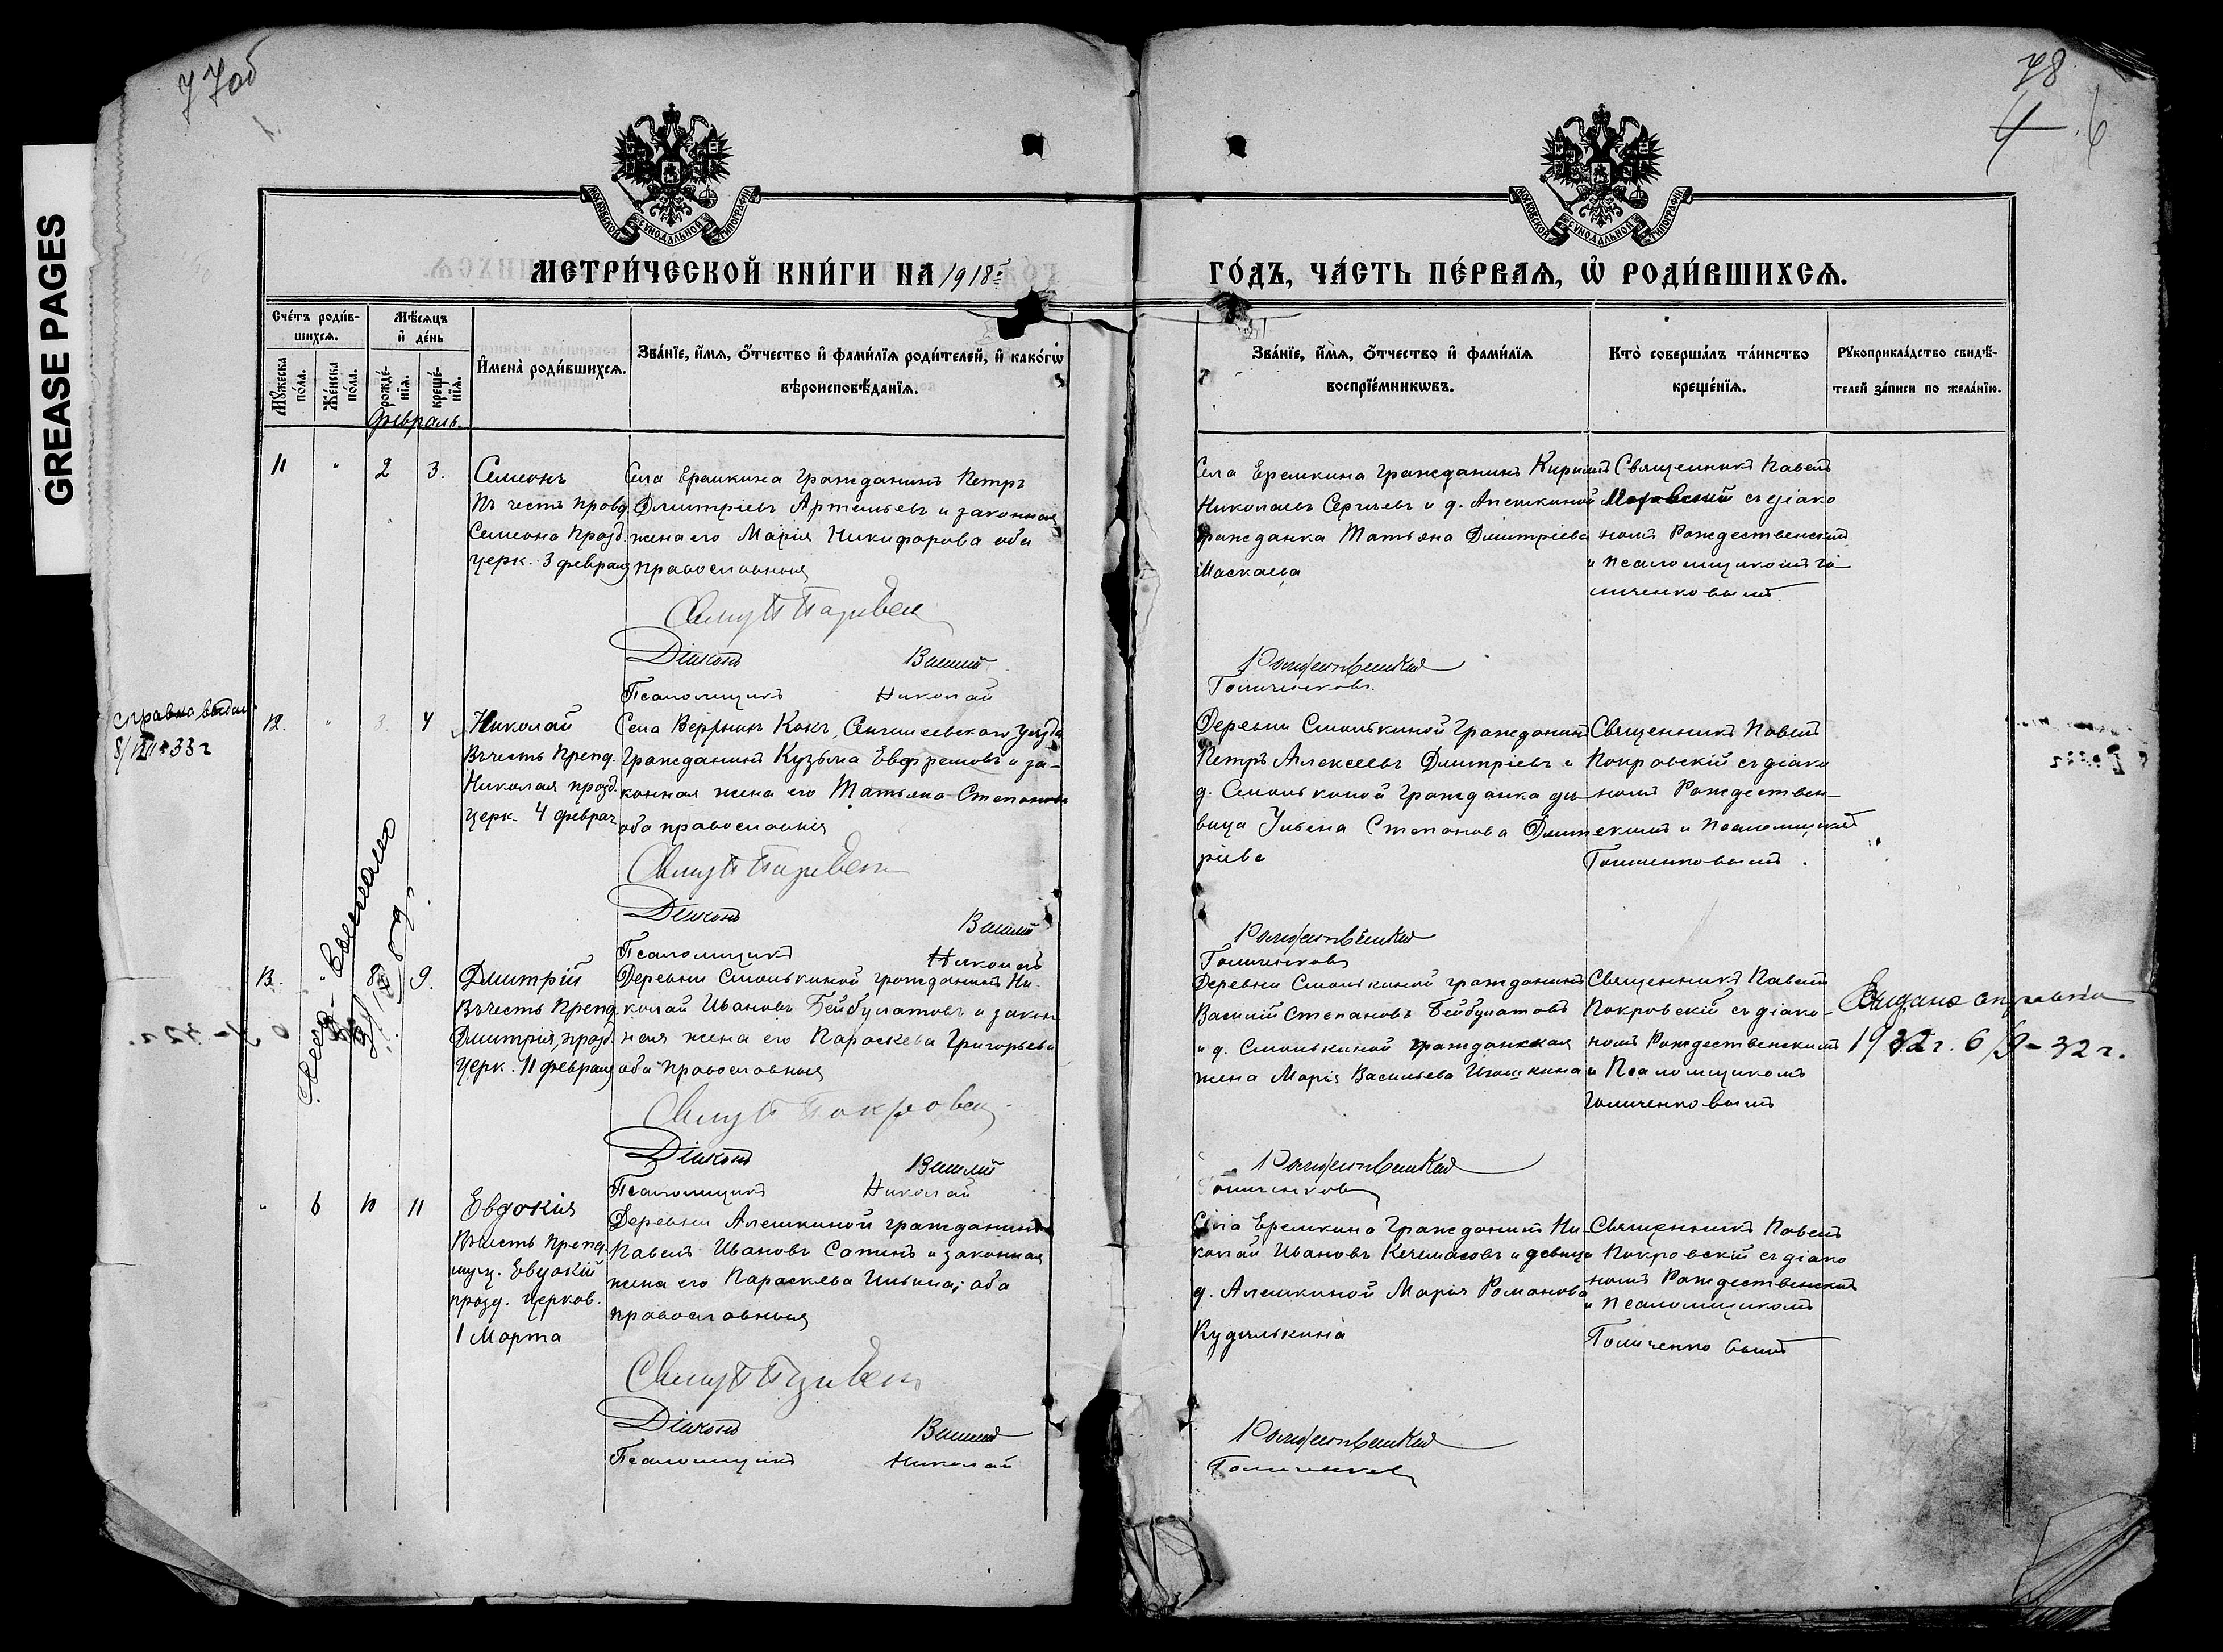 77об
78
4 6
GREASE PAGES
МОСКОВСКОЙ СУНОДАЛЬНОЙ ТИПОГРАФИИ
МОСКОВСКОЙ СУНОДАЛЬНОЙ ТИПОГРАФИИ
МЕТРИ́ЧЕСКОЙ КНИ́ГИ НА 1918 г.
ГО́ДЪ, ЧА́СТЬ ПЕ́РВАѦ, Ѡ҆ РОДИ́ВШИХСѦ.
Сче́тъ роди́в-
шихсѧ.
Мꙋ́жеска по́ла.
Же́нска по́ла.
Мѣ́сѧцъ и҆ де́нь
рожде́-нїѧ.
креще́-нїѧ.
Февраль.
И҆мена̀ роди́вшихсѧ.
Зва́нїе, и҆́мѧ, ѻ҆́тчество и҆ фами́лїѧ роди́телей, и҆ како́гѡ
вѣроисповѣ́данїѧ.
Зва́нїе, и҆́мѧ, ѻ҆́тчество и҆ фами́лїѧ
воспрїе́мникѡвъ.
Кто̀ соверша́лъ та́инство
креще́нїѧ.
Рꙋкоприкла́дство свидѣ́-
телей за́писи по жела́нїю.
11 " 2 3.
Симеонъ
Въ честь правд.
Симеона празд.
церк. 3 февраля
Села Еремкина гражданинъ Петръ
Дмитріевъ Артемьевъ и законная
жена его Марія Никифорова оба
православныя
Діаконъ Василій
Псаломщикъ Николай
Села Еремкина гражданинъ
Николаевъ Сергеевъ и д. Алешкиной
гражданка Татьяна Дмитріева
Маскаева
Рождественскій
Голиченковъ.
Священникъ Павелъ
съ діако
номъ Рождественскимъ
и псаломщикомъ Го-
личенковымъ
справка выдан
8/III-33 г
12. " 3. 4
Николай
Въ честь Препд.
Николая празд.
церк. 4 феврал
Гражданинъ Кузьма и за-
конная жена его Татьяна Степанова
оба православныя
Діаконъ Василій
Псаломщикъ Николай
Деревни Смолькиной гражданинъ
Петръ Алексеевъ Дмитріевъ и
д. Смолькиной гражданка дѣ-
вица Степанова Дмит
ріева
Рождественскій
Голиченковъ
Священникъ Павелъ
Покровскій съ діако
номъ Рождествен-
скимъ и Псаломщикомъ
Голиченковымъ.
13. " 8 9.
Дмитрій
Въ честь Препд.
Дмитрія, празд.
церк. 11 февраля
Деревни Смолькиной гражданинъ Ни-
колай Ивановъ Бейбулатовъ и закон
ная жена его Параскева Григорьева
оба православныя
Діаконъ Василій
Псаломщикъ Николай
Деревни Смолькиной гражданинъ
Василій Степановъ Бейбулатовъ
и д. Смолькиной гражданская
жена Марія Васильева
Рождественскій
Голиченковъ
Священникъ Павелъ
Покровскій съ діако-
номъ Рождественскимъ
и Псаломщикомъ
Голиченковымъ
Выдана справка
1932 г. 6/9-32 г.
" 6 10 11
Евдокія
Въ честь препд.
муч. Евдокіи
празд. церков.
1 Марта
Деревни Алешкиной гражданинъ
Павелъ Ивановъ Сапинъ и законная
жена его Параскева Ильина; оба
православныя
Діаконъ Василій
Псаломщикъ Николай
Села Еремкина гражданинъ Ни-
колай Ивановъ Кечемасовъ и девица
д. Алешкиной Марія Романова
Кудилькина
Рождественскій
Голиченковъ
Священникъ Павелъ
Покровскій съ діако
номъ Рождественскимъ
и Псаломщикомъ
Голиченковымъ